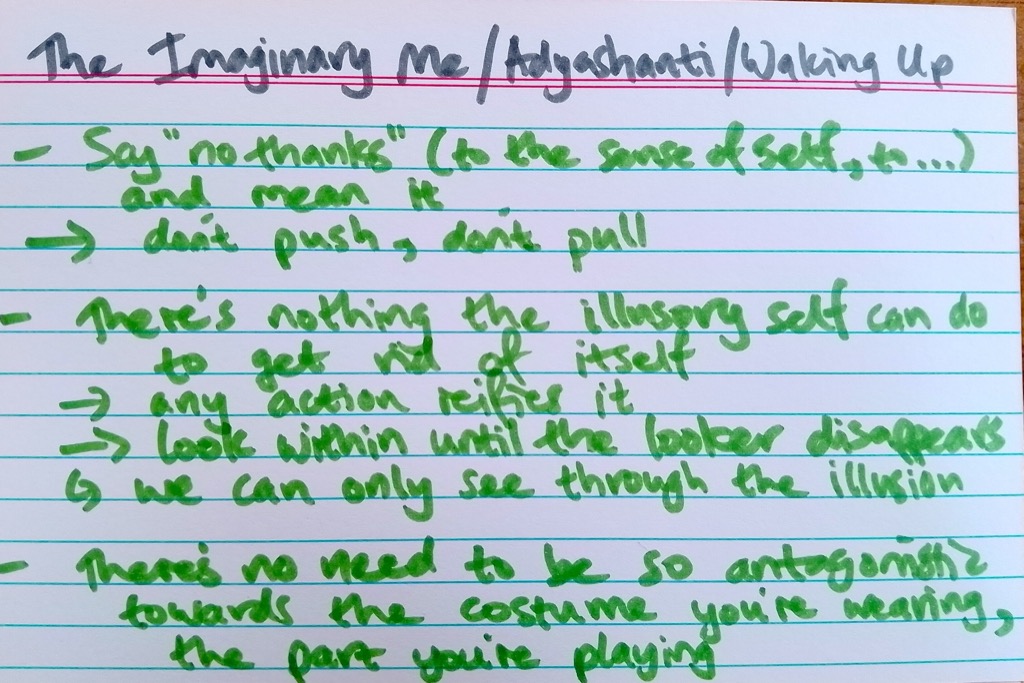 The Imaginary Me/Adyashanti/Waking Up
- Say "no thanks" (to the sense of self, to...)
and mean it
→ don't push, don't pull
- There's nothing the illusory self can do
to get rid of itself
→ any action reifies it
→ Look within until the looker disappears
↳ we can only see through the illusion
- There's no need to be so antagonistic
towards the costume you're wearing,
the part you're playing